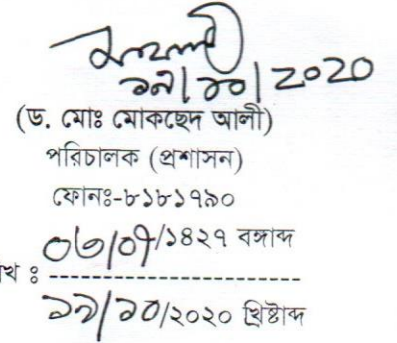 ১৯/১০/2020
(ড. মোঃ মোকছেদ আলী)
পরিচালক (প্রশাসন)
ফোনঃ-৮১৮১৭৯০
০৩/০৭/১৪২৭ বঙ্গাব্দ
খ ঃ --------------------------
১৯/১০/২০২০ খ্রিষ্টাব্দ